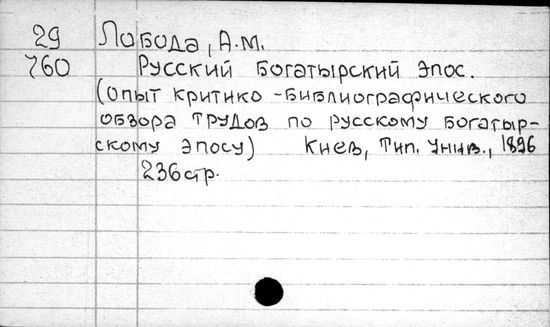 29 Лобода, А.М.
760 Русский богатырский эпос.
(опыт критико-библиографического
обзора трудов по русскому богатыр-
скому эпосу) Киев, Тип. Унив., 1896
236 стр.